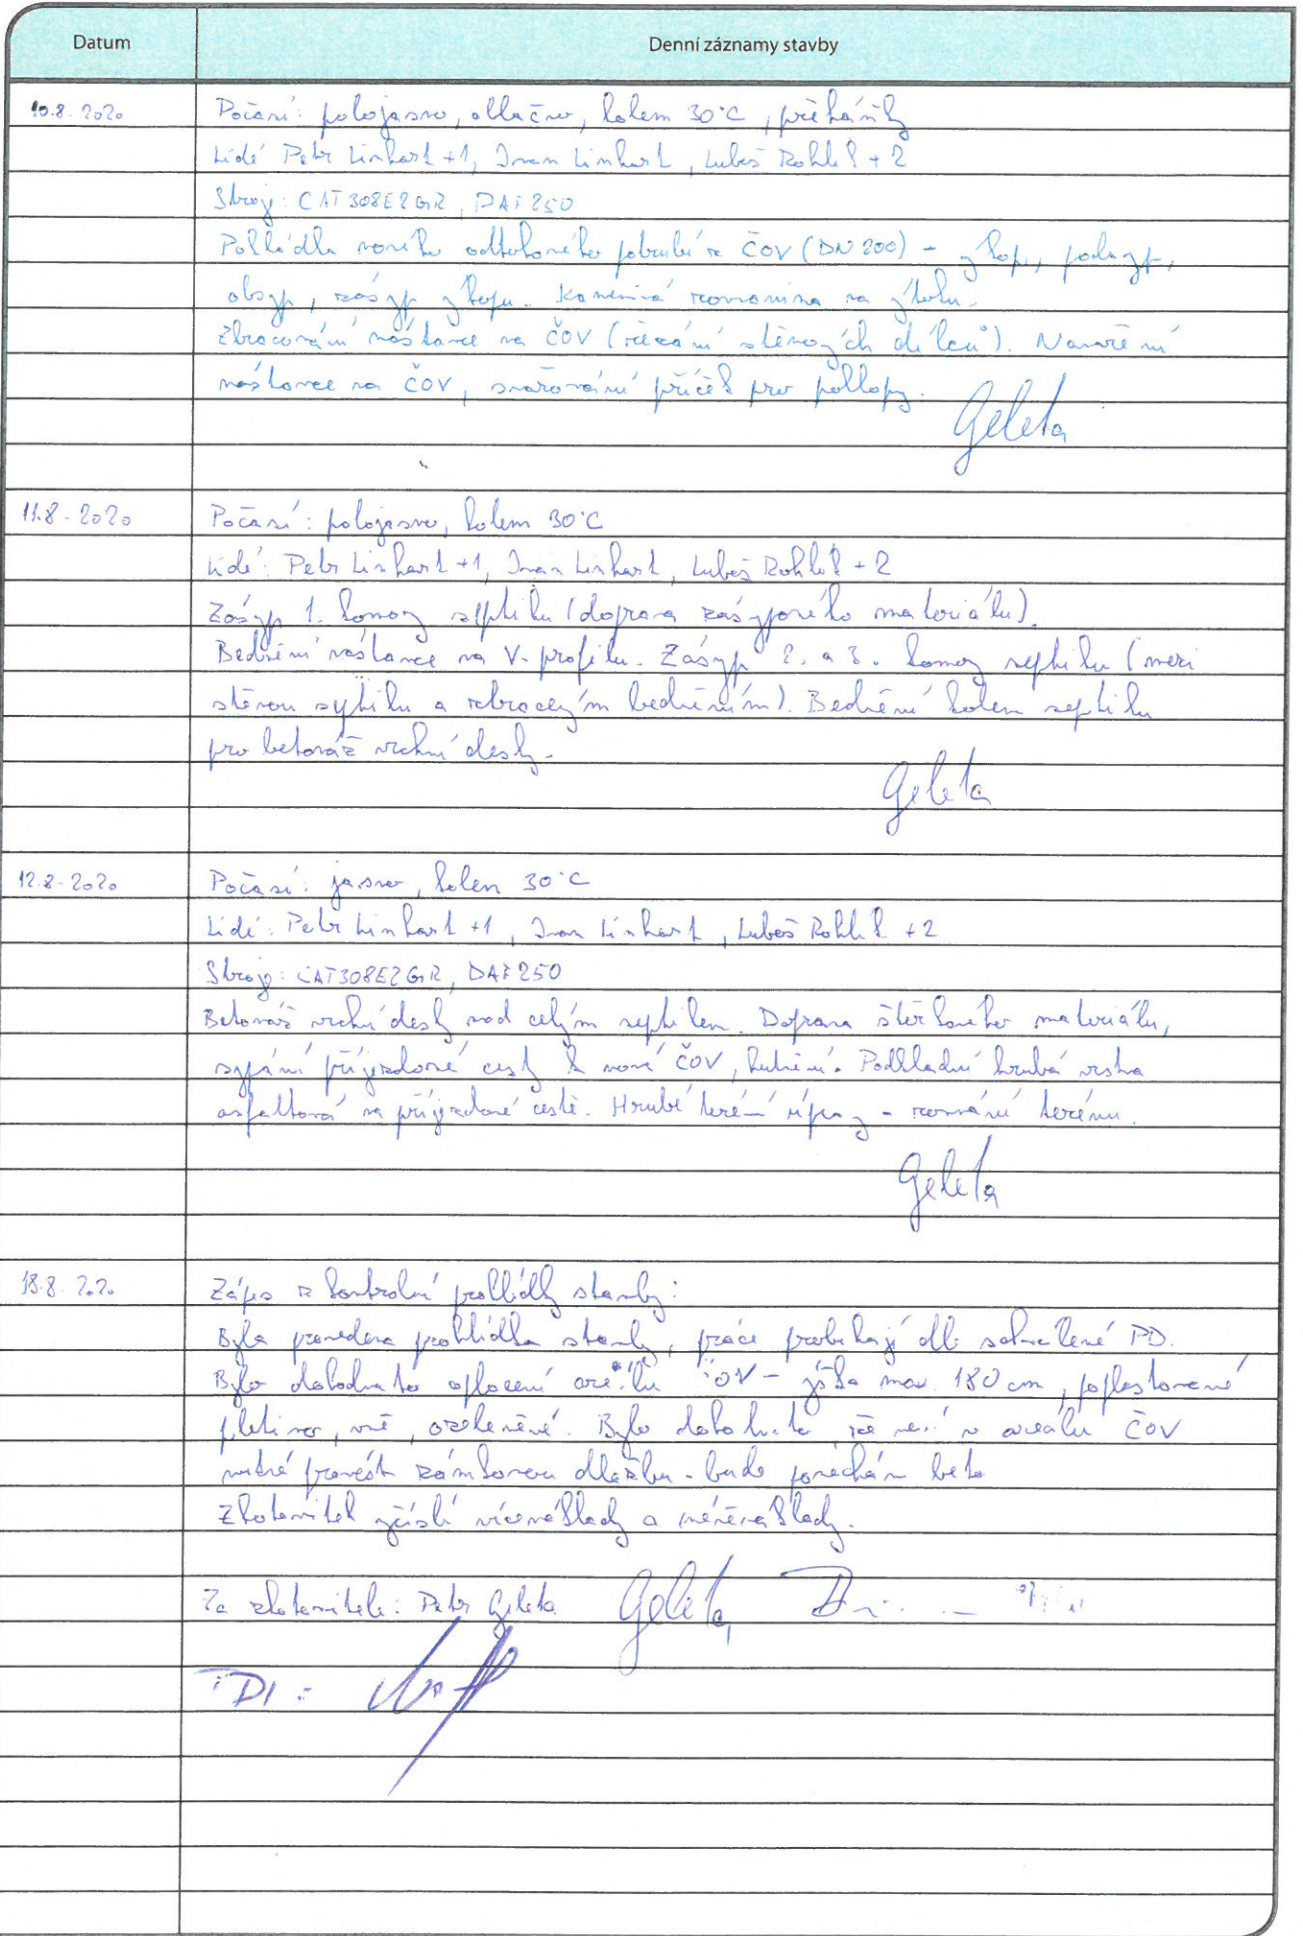 Datum
Denní záznamy stavby
10.8.2020
Počasí: polojasno, oblačno, kolem 30°C, přeháňky
Lidé Petr Linhart +1, Ivan Linhart, Luboš Rohlík + 2
Stroj: CAT308E2GR, DAF250
Pokládka nového odtokového potrubí z ČOV (DN 200) - výkop, podsyp,
obsyp, zásyp výkopu. Kamenivá rovnanina na výtoku.
Zkracování nástavce na ČOV (řezání stěnových dílců). Navaření
nástavce na ČOV, svařování příček pro poklopy.
Geleta
11.8.2020
Počasí: polojasno, kolem 30°C
Lidé: Petr Linhart +1, Ivan Linhart, Luboš Rohlík + 2
Zásyp 1. komory septiku (doprava zásypového materiálu).
Bednění nástavce na V. profilu. Zásyp 2. a 3. komory septiku (mezi
stěnou septiku a ztraceným bedněním). Bednění kolem septiku
pro betonáž vrchní desky.
Geleta
12.8.2020
Počasí: jasno, kolem 30°C
Lidé: Petr Linhart +1, Ivan Linhart, Luboš Rohlík +2
Stroje: CAT308E2GR, DAF250
Betonáž vrchní desky nad celým septikem. Doprava štěrkového materiálu,
sypání příjezdové cesty k nové ČOV, hutnění. Podkladní hrubá vrstva
asfaltová na příjezdové cestě. Hrubé terénní úpravy - rovnání terénu.
Geleta
18.8.2020
Zápis z kontrolní prohlídky stavby:
Byla provedena prohlídka stavby, práce probíhají dle schválené PD.
Bylo dohodnuto oplocení areálu ČOV - výška max. 180 cm, poplastované
pletivo, ozeleněné. Bylo dohodnuto, že není v areálu ČOV
nutné provést zámkovou dlažbu - bude ponechán
Zhotovitel vyčíslí vícenáklady a méněnáklady.
Za zhotovitele: Petr Geleta Geleta
TDI: